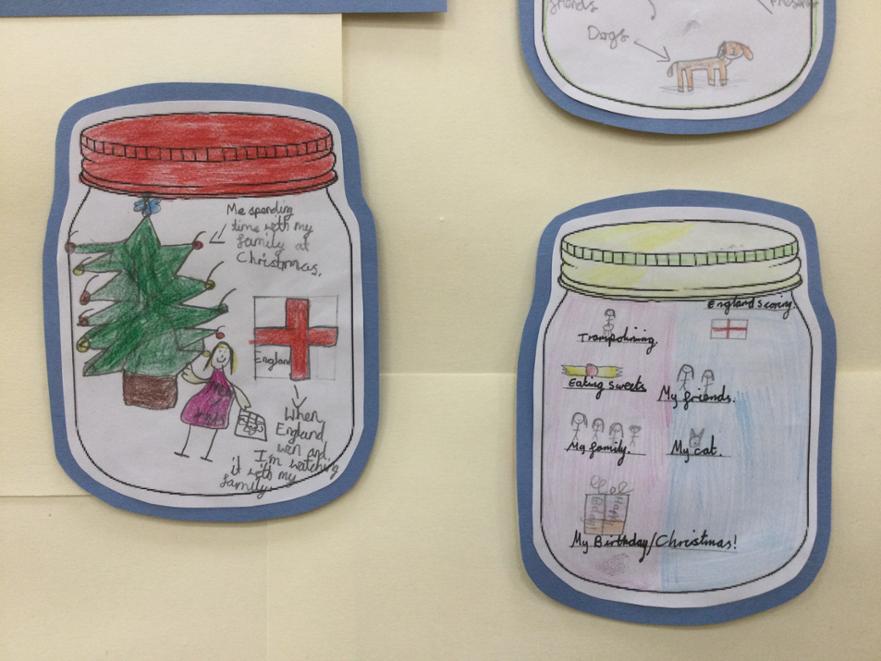 friends
Dogs
Me spending
time with my
family at
Christmas.
England
When
England
win and
I'm watching
it with my
family.
England scoring.
Trampolining.
Eating sweets
My friends.
My family.
My cat.
My Birthday/Christmas!